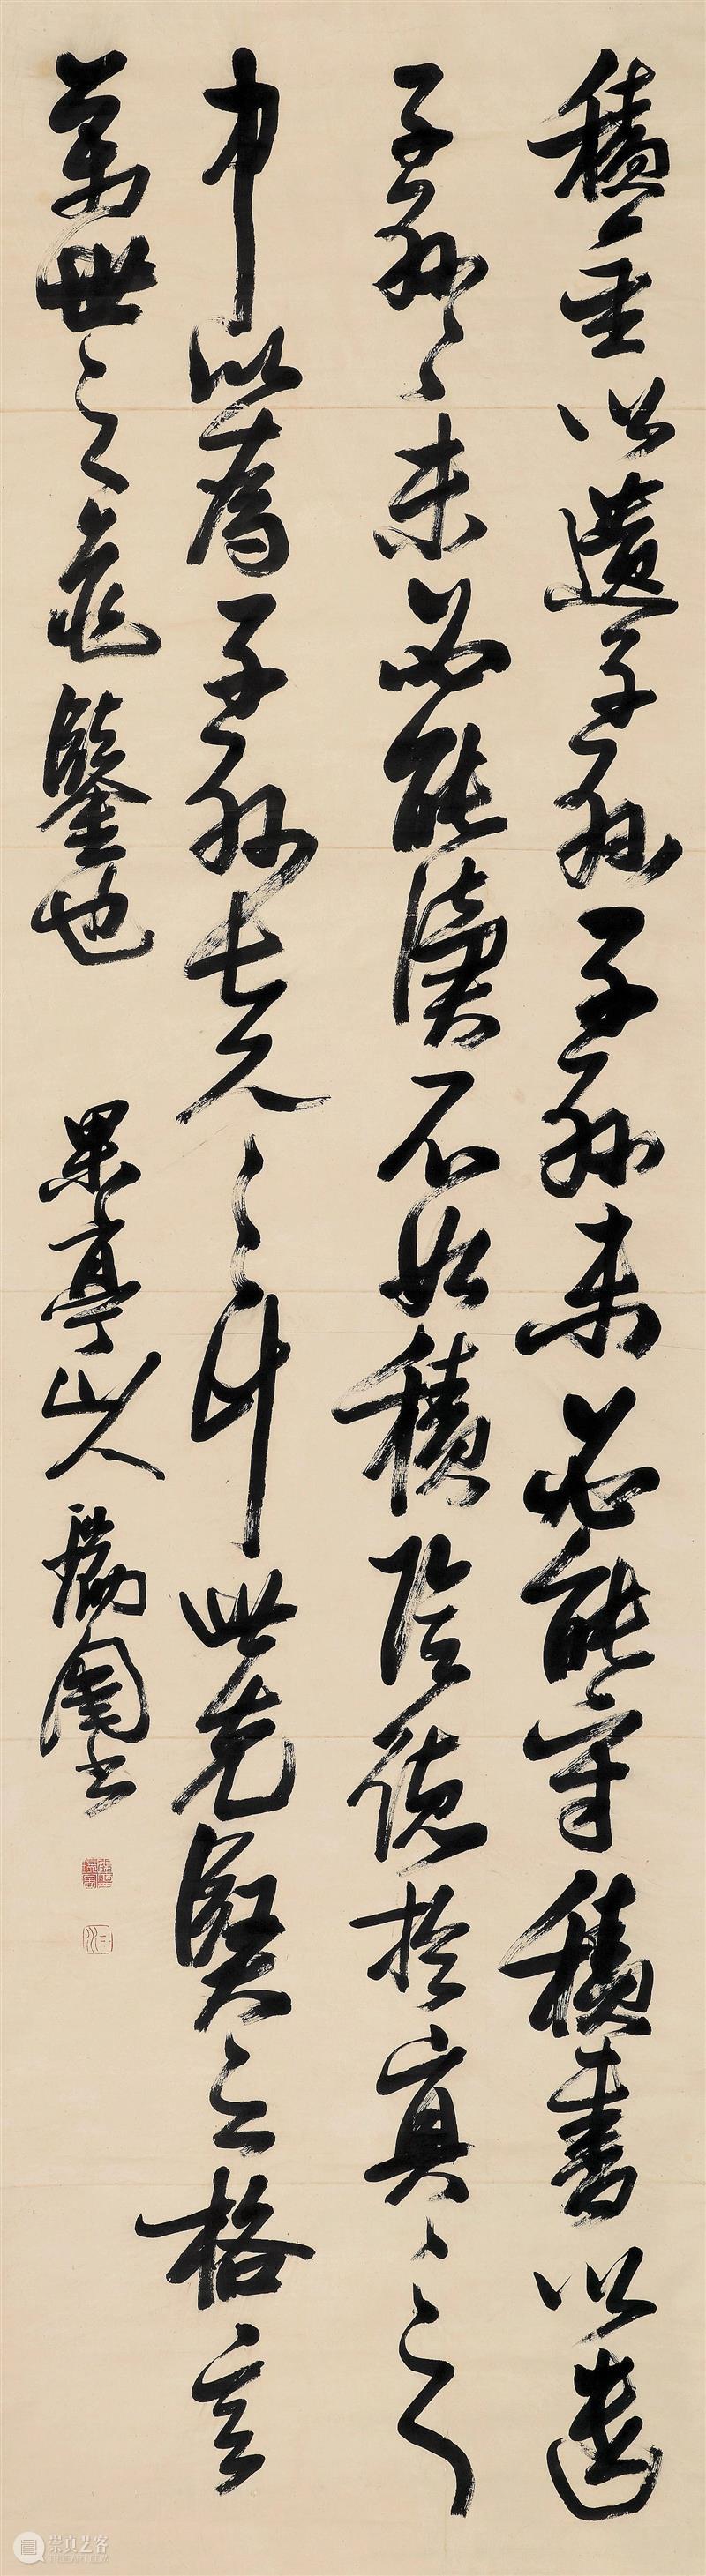 積金以遺子孫子孫未必能守積書以遺
子孫々々未必能讀不如積陰德於冥々之
中以為子孫長久之計此先賢之格言
萬世之龜鑒也
果亭山人瑞圖書
崇真艺客